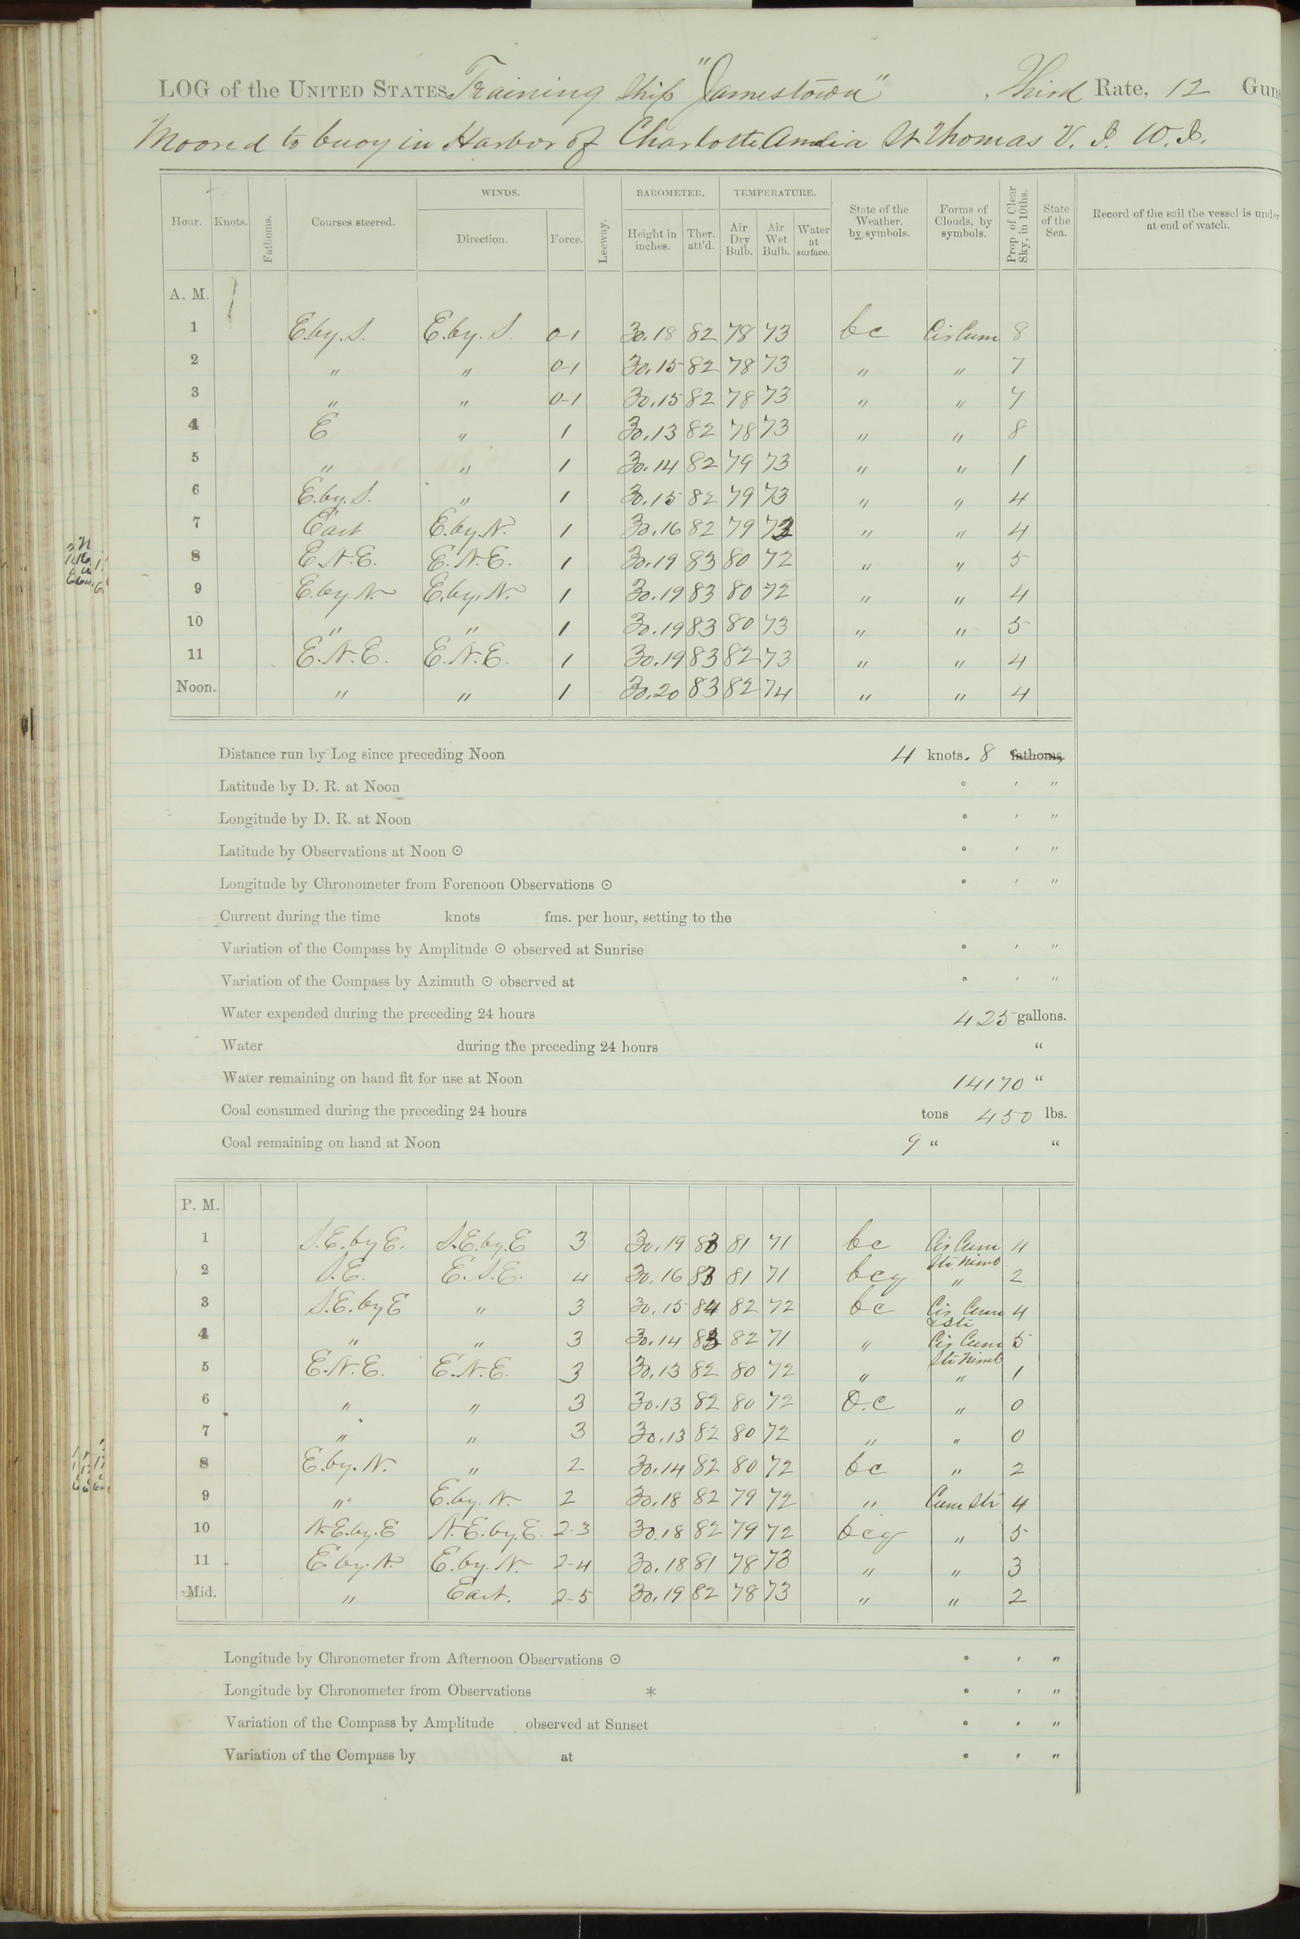 LOG of the UNITED STATES Training Ship "Jamestown", Third Rate, 12 Guns
Moored to buoy in Harbor of Charlotte Amalia St Thomas V. I. W. I.
WINDS. BAROMETER. TEMPERATURE.
Hour. Knots. Fathoms. Courses steered. Direction. Force. Leeway. Height in inches. Ther. att'd. Air Dry Bulb. Air Wet Bulb. Water at surface. State of the Weather, by symbols. Forms of Clouds, by symbols. Prop. of Clear Sky, in 10ths. State of the Sea. Record of the sail the vessel is under at end of watch.
A. M.
1 E.by.S. E.by.S. 0-1 30.18 82 78 73 bc Cir Cum 8
2 " " 0-1 30.15 82 78 73 " " 7
3 " " 0-1 30.15 82 78 73 " " 7
4 E " 1 30.13 82 78 73 " " 8
5 " " 1 30.14 82 79 73 " " 1
6 E.by.S. " 1 30.15 82 79 73 " " 4
7 East E.by.N. 1 30.16 82 79 73 " " 4
8 E.N.E. E.N.E. 1 30.19 83 80 72 " " 5
9 E.by.N. E.by.N. 1 30.19 83 80 72 " " 4
10 " " 1 30.19 83 80 73 " " 5
11 E.N.E. E.N.E. 1 30.19 83 82 73 " " 4
Noon. " " 1 30.20 83 82 74 " " 4
Distance run by Log since preceding Noon 4 knots. 8 fathoms,
Latitude by D. R. at Noon ° ′ ″
Longitude by D. R. at Noon ° ′ ″
Latitude by Observations at Noon ⊙ ° ′ ″
Longitude by Chronometer from Forenoon Observations ⊙ ° ′ ″
Current during the time knots fms. per hour, setting to the
Variation of the Compass by Amplitude ⊙ observed at Sunrise ° ′ ″
Variation of the Compass by Azimuth ⊙ observed at ° ′ ″
Water expended during the preceding 24 hours 425 gallons.
Water during the preceding 24 hours "
Water remaining on hand fit for use at Noon 14170 "
Coal consumed during the preceding 24 hours tons 450 lbs.
Coal remaining on hand at Noon 9 " "
P. M.
1 S.E.by E. S.E.by.E 3 30.19 83 81 71 bc Cir Cum 4
2 S.E. E.S.E. 4 30.16 83 81 71 bcq Str Nimb " 2
3 S.E.by E " 3 30.15 84 82 72 bc Cir Cum & Str 4
4 " " 3 30.14 83 82 71 " Cir Cum 5
5 E.N.E. E.N.E. 3 30.13 82 80 72 " Str Nimb " 1
6 " " 3 30.13 82 80 72 O.C " 0
7 " " 3 30.13 82 80 72 " " 0
8 E.by.N. " 2 30.14 82 80 72 bc " 2
9 " E.by.N. 2 30.18 82 79 72 " Cum Str 4
10 N.E.by.E N.E.by.E. 2-3 30.18 82 79 72 bcq " 5
11 E by.N. E.by.N. 2-4 30.18 81 78 73 " " 3
Mid. " East. 2-5 30.19 82 78 73 " " 2
Longitude by Chronometer from Afternoon Observations ⊙ ° ′ ″
Longitude by Chronometer from Observations * ° ′ ″
Variation of the Compass by Amplitude observed at Sunset ° ′ ″
Variation of the Compass by at ° ′ ″